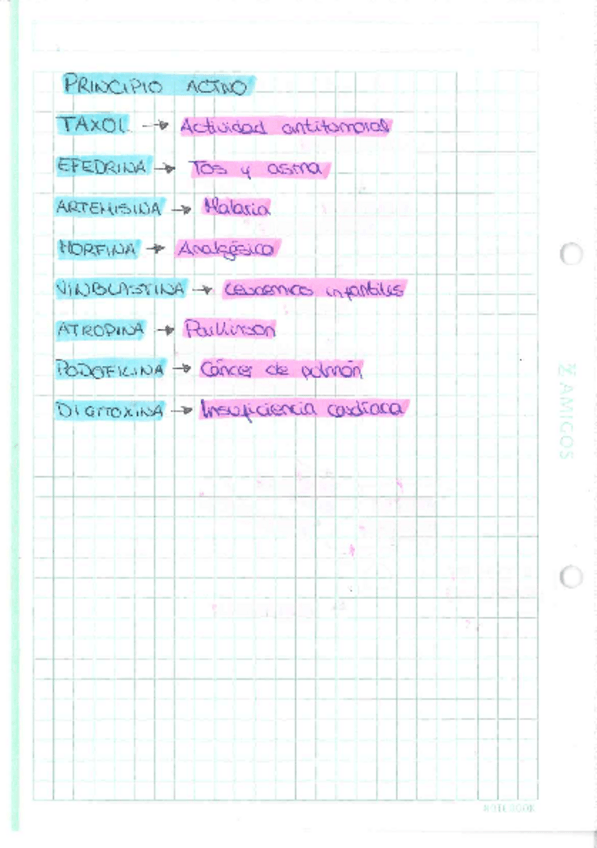 PRINCIPIO ACTIVO
TAXOL → Actividad antitumoral
EFEDRINA → Tos y asma
ARTEMISINA → Malaria
MORFINA → Analgésico
VINBLASTINA → Leucemias infantiles
ATROPINA → Parkinson
PODOFILINA → Cáncer de pulmón
DIGITOXINA → Insuficiencia cardíaca
AMIGOS
NOTEBOOK